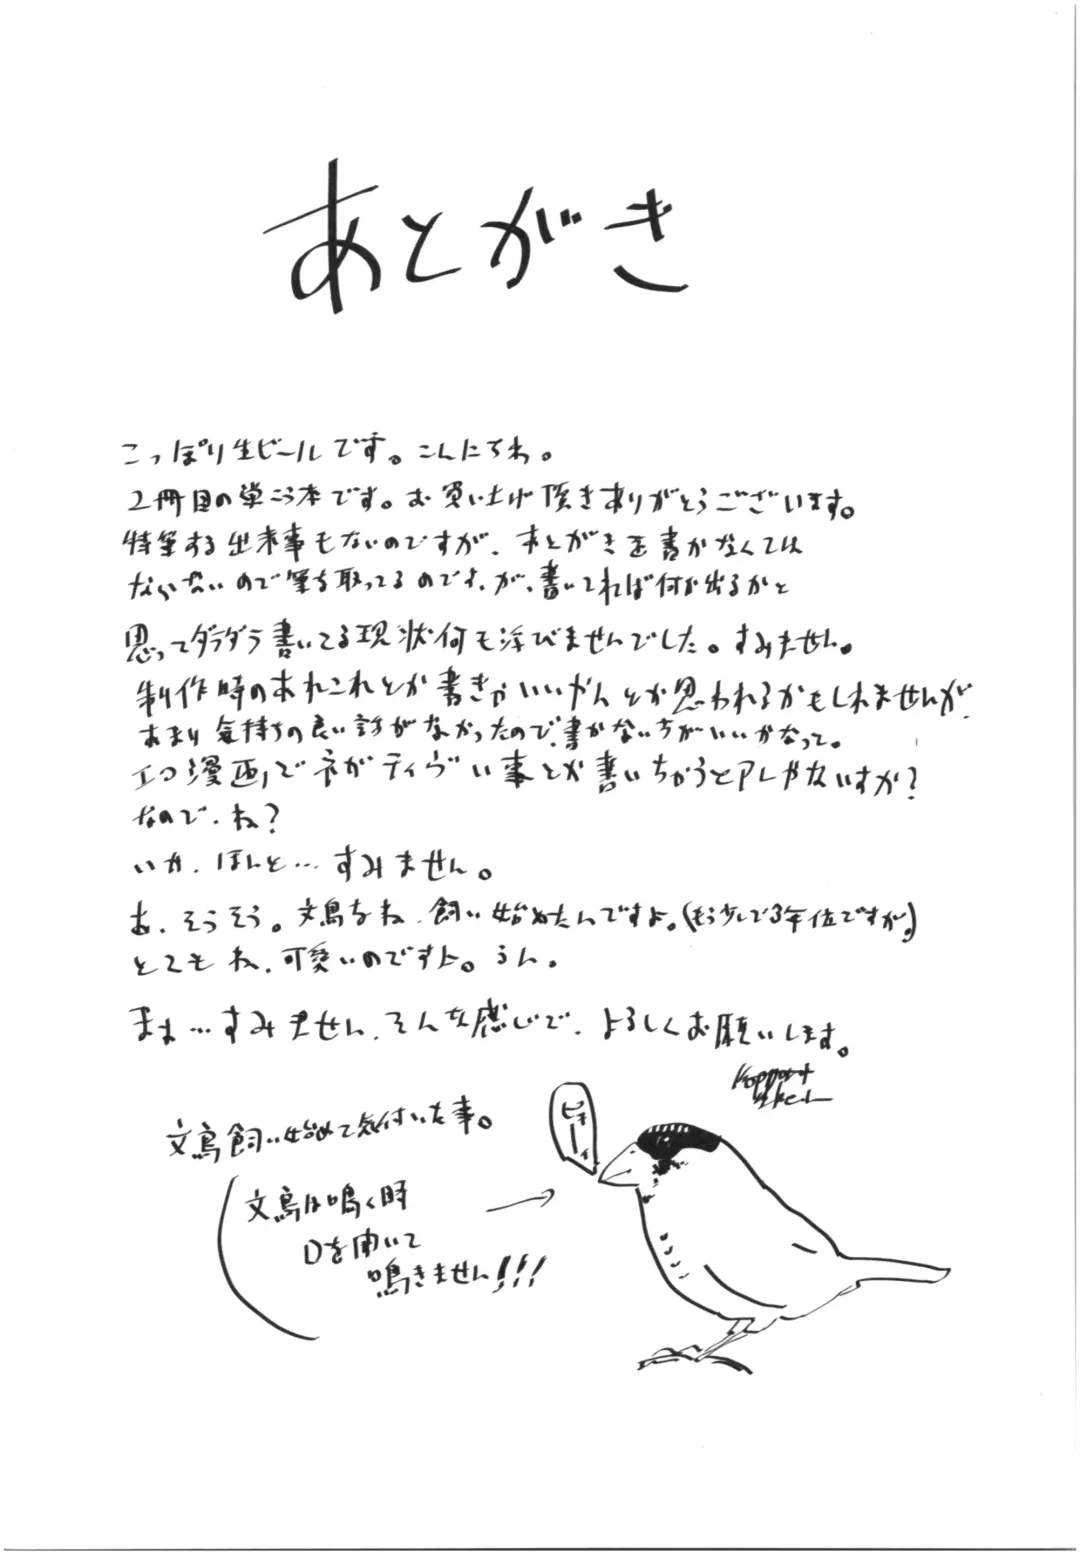 あとがき
こっぽり生ビールです。こんにちわ。
2冊目の単こう本です。お買い上げ頂きありがとうございます。
特筆する出来事もないのですが、あとがきを書かなくては
ならないので筆を取ってるのです、が、書いてれば何か出るかと
思ってダラダラ書いてる現状何も浮びませんでした。すみません。
制作時のあれこれとか書きゃいいやんとか思われるかもしれませんが、
あまり気持ちの良い話がなかったので、書かない方がいいかなって。
エロ漫画でネガティヴい事とか書いちゃうとアレぢゃないすか?
なので、ね?
いや、ほんと…すみません。
あ、そうそう。文鳥をね、飼い始めたんですよ。(もう少しで3年位ですが。)
とてもね、可愛いのですよ。うん。
まぁ…すみません、そんな感じで、よろしくお願いします。
文鳥飼い始めて気付いた事。
文鳥は鳴く時
口を開いて
鳴きません!!!